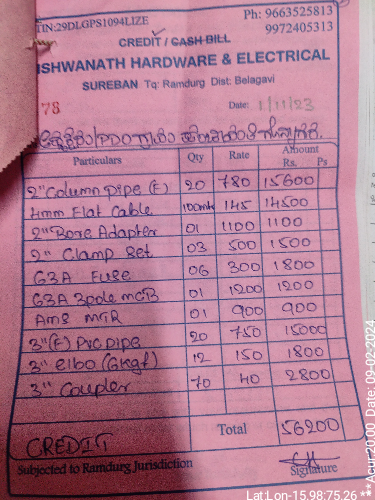 TIN:29DLGPS1094L1ZE Ph: 9663525813
9972405313
CREDIT / CASH BILL
ISHWANATH HARDWARE & ELECTRICAL
SUREBAN Tq: Ramdurg Dist: Belagavi
78 Date: 1/11/23
Particulars Qty Rate Amount Rs. Ps
2" Column pipe (E) 20 780 15600
4mm Flat Cable 100mtr 145 14500
2" Bore Adapter 01 1100 1100
2" Clamp Set 03 500 1500
63A Fuse 06 300 1800
63A 3pole MCB 01 1200 1200
Ams MTR 01 900 900
3" (E) Pvc pipe 20 750 15000
3" elbo (6kgf) 12 150 1800
3" Coupler 70 40 2800
Total 56200
CREDIT
Subjected to Ramdurg Jurisdiction Signature
Lat:Lon-15.98:75.26 ** Acur:20.00 Date: 09-02-2024